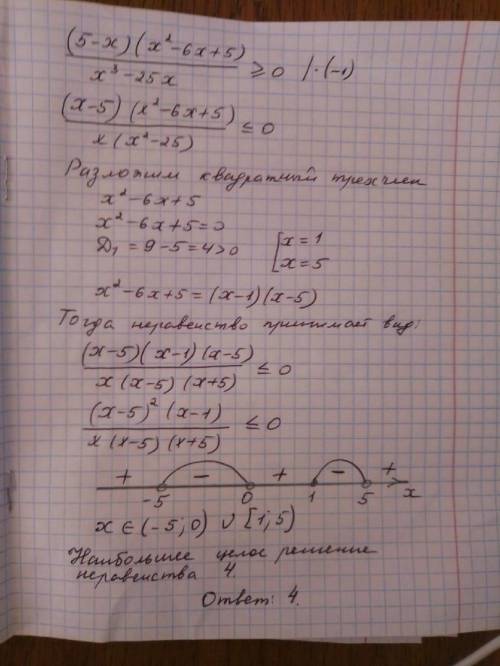 (5-x)(x²-6x+5)/(x³-25x) ≥ 0 |·(-1)
(x-5)(x²-6x+5)/(x(x²-25)) ≤ 0
Разложим квадратный трехчлен
x²-6x+5
x²-6x+5=0
D₁ = 9-5=4>0 [x=1
x=5
x²-6x+5=(x-1)(x-5)
Тогда неравенство принимает вид:
(x-5)(x-1)(x-5)/(x(x-5)(x+5)) ≤ 0
(x-5)²(x-1)/(x(x-5)(x+5)) ≤ 0
+ - + - +
-5 0 1 5 x
x∈(-5;0)∪[1;5)
Наибольшее целое решение
неравенства 4.
Ответ: 4.